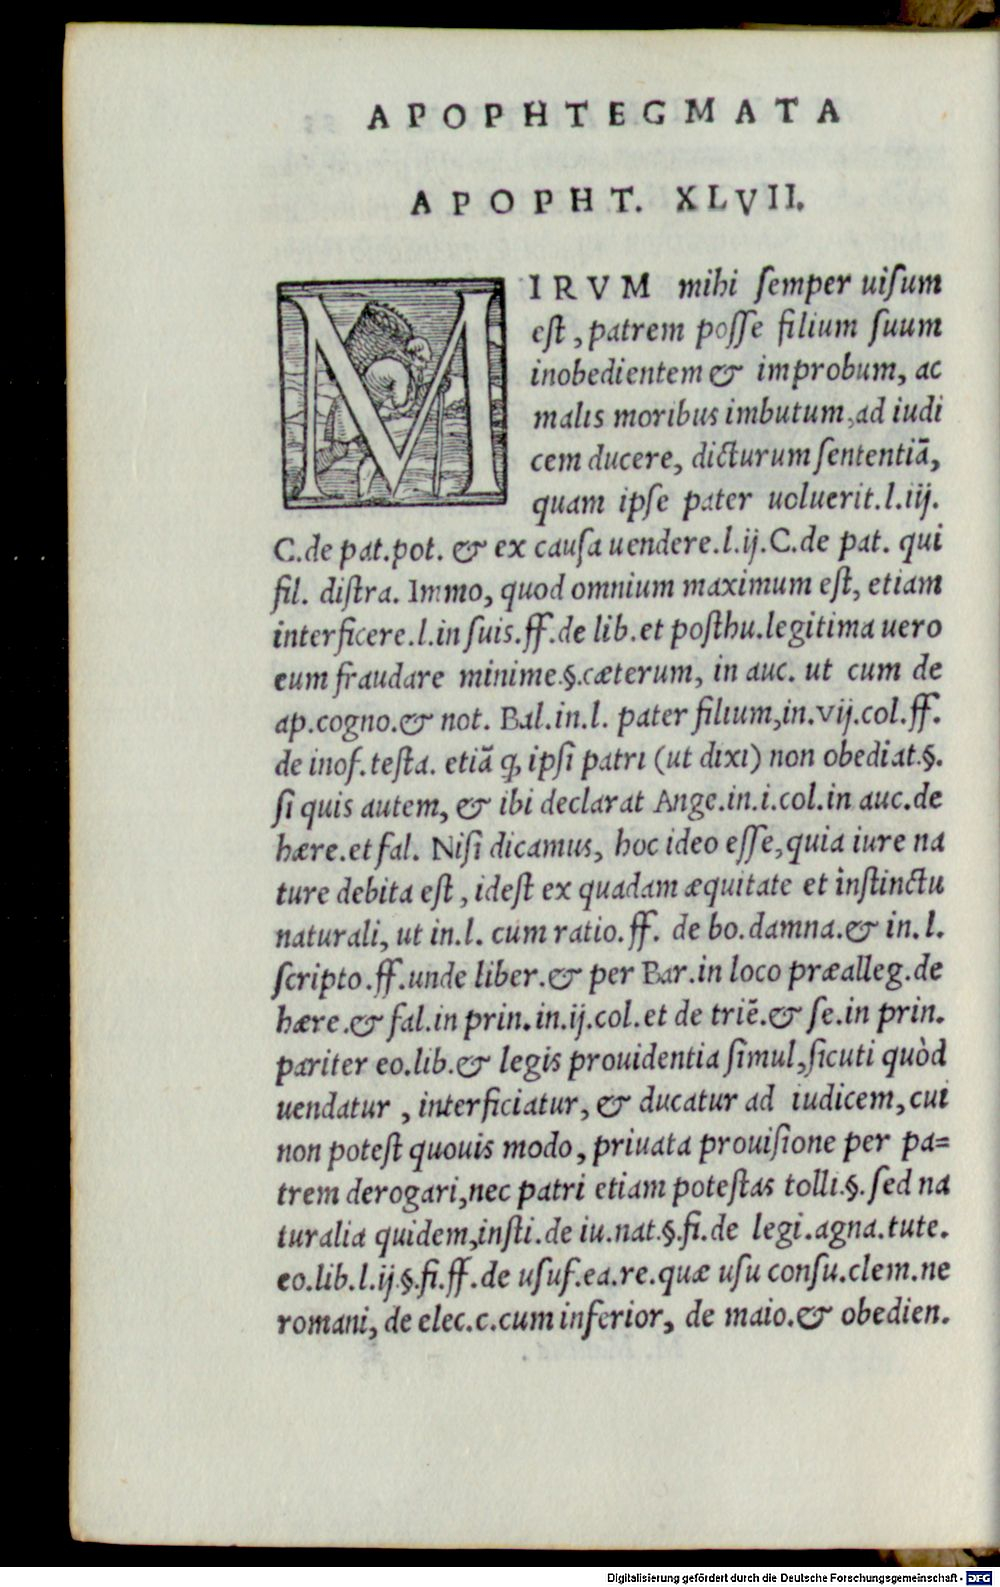 APOPHTEGMATA
APOPHT. XLVII.
MIRVM mihi semper uisum
est, patrem posse filium suum
inobedientem & improbum, ac
malis moribus imbutum, ad iudi
cem ducere, dicturum sententiā,
quam ipse pater uoluerit.l.iij.
C.de pat.pot. & ex causa uendere.l.ij.C.de pat. qui
fil. distra. Immo, quod omnium maximum est, etiam
interficere.l.in suis.ff.de lib.et posthu.legitima uero
eum fraudare minime.§.cæterum, in auc. ut cum de
ap.cogno.& not. Bal.in.l. pater filium,in.vij.col.ff.
de inof.testa. etiā ꝙ ipsi patri (ut dixi) non obediat.§.
si quis autem, & ibi declarat Ange.in.i.col.in auc.de
hære.et fal. Nisi dicamus, hoc ideo esse,quia iure na
ture debita est, idest ex quadam æquitate et instinctu
naturali, ut in.l. cum ratio.ff. de bo.damna.& in.l.
scripto.ff.unde liber.& per Bar.in loco præalleg.de
hære.& fal.in prin.in.ij.col.et de triē.& se.in prin.
pariter eo.lib.& legis prouidentia simul,sicuti quòd
uendatur, interficiatur, & ducatur ad iudicem, cui
non potest quouis modo, priuata prouisione per pa=
trem derogari,nec patri etiam potestas tolli.§. sed na
turalia quidem,insti.de iu.nat.§.fi.de legi.agna.tute.
eo.lib.l.ij.§.fi.ff.de usuf.ea.re.quæ usu consu.clem.ne
romani, de elec.c.cum inferior, de maio.& obedien.
Digitalisierung gefördert durch die Deutsche Forschungsgemeinschaft - DFG